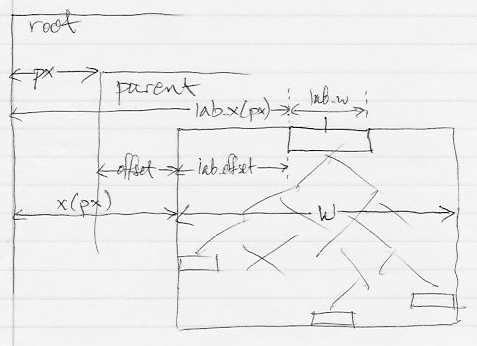 root
px
parent
lab_x(px)
lab_w
offset
lab_offset
x(px)
W